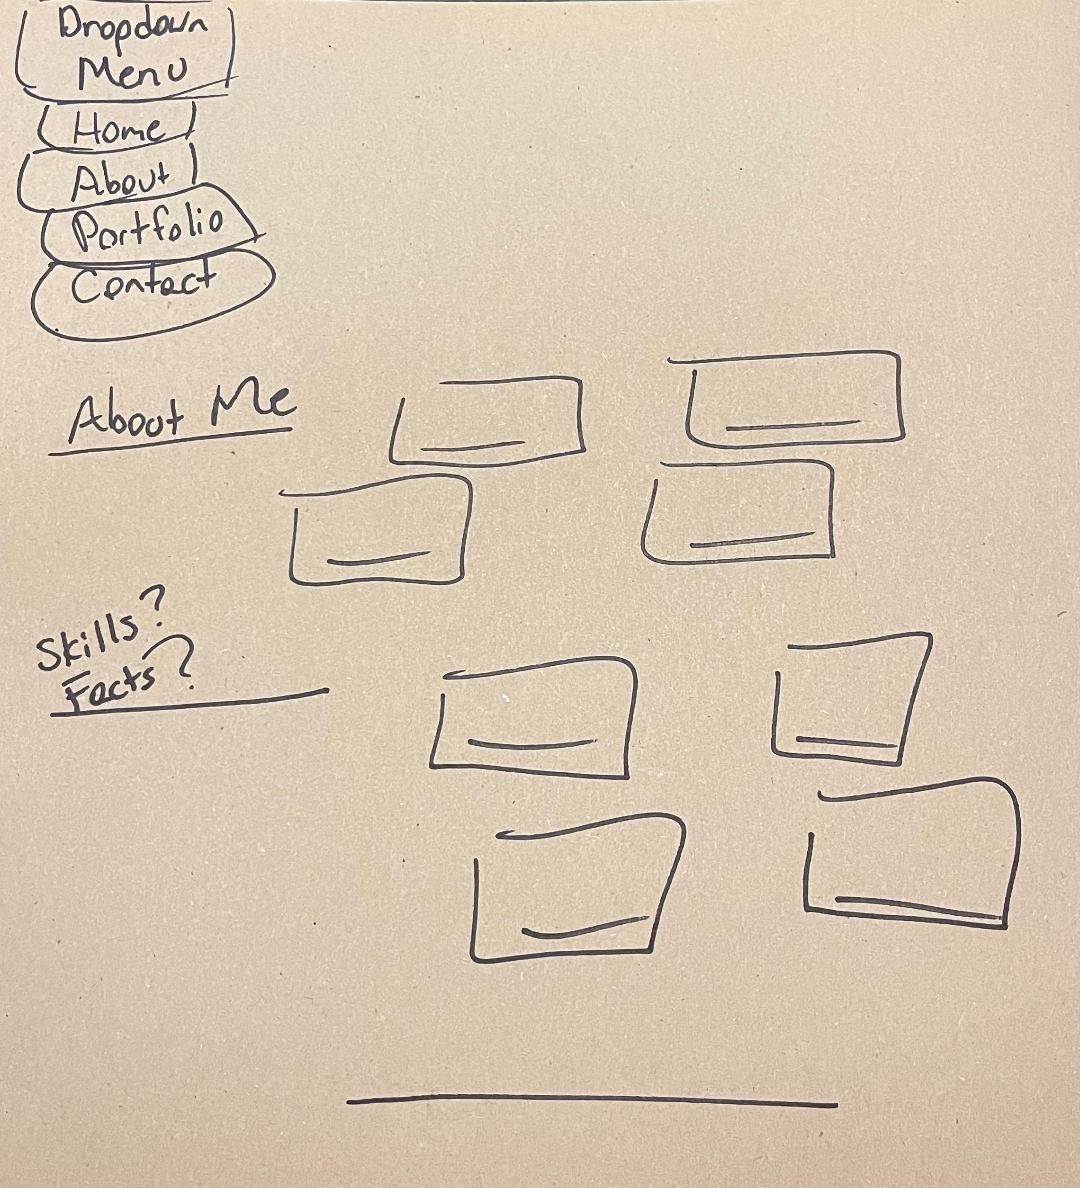 Dropdown
Menu
Home
About
Portfolio
Contact
About Me
Skills?
Facts?